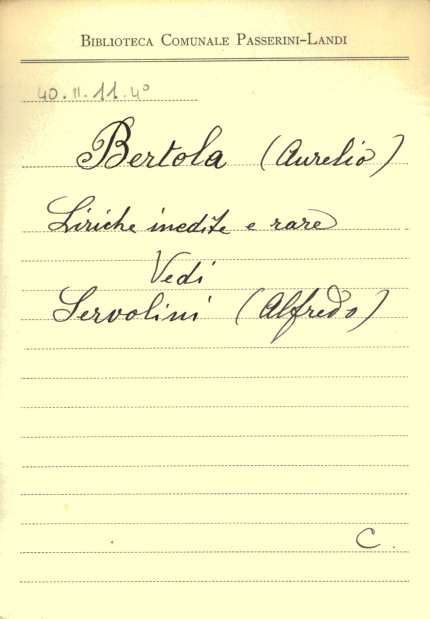 BIBLIOTECA COMUNALE PASSERINI-LANDI
40.II.11.4°
Bertola (Aurelio)
Liriche inedite e rare
Vedi
Servolini (Alfredo)
C.